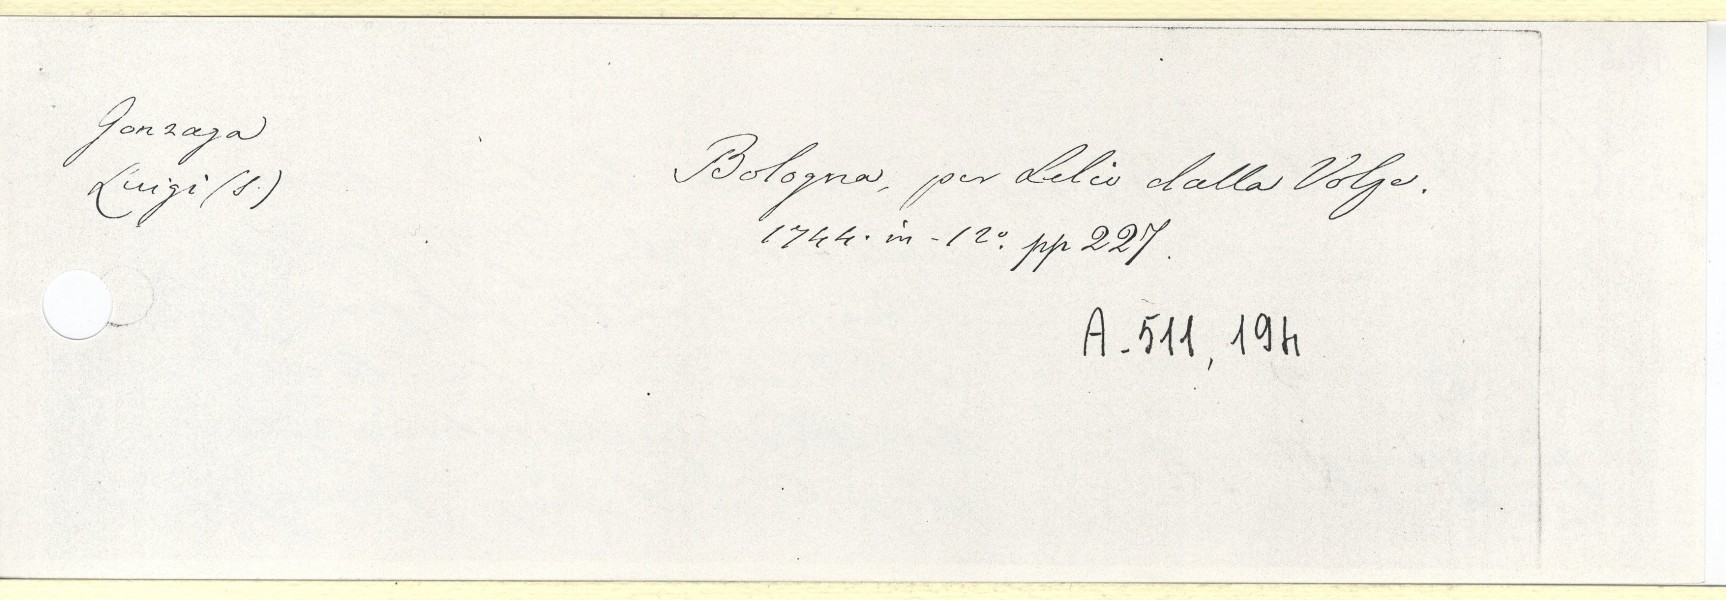 Gonzaga
Luigi (S.)
Bologna, per Lelio dalla Volpe.
1744. in-12º. pp 227.
A-511, 194